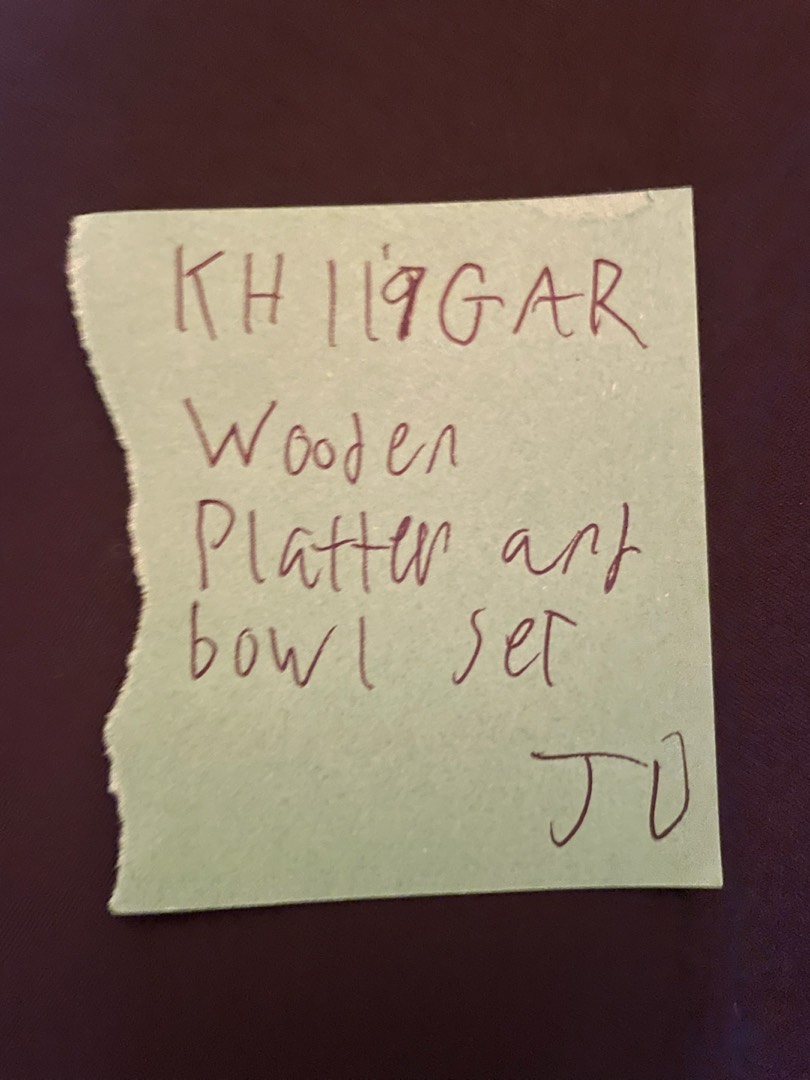 KH119GAR
Wooden
Platter and
bowl set
JD